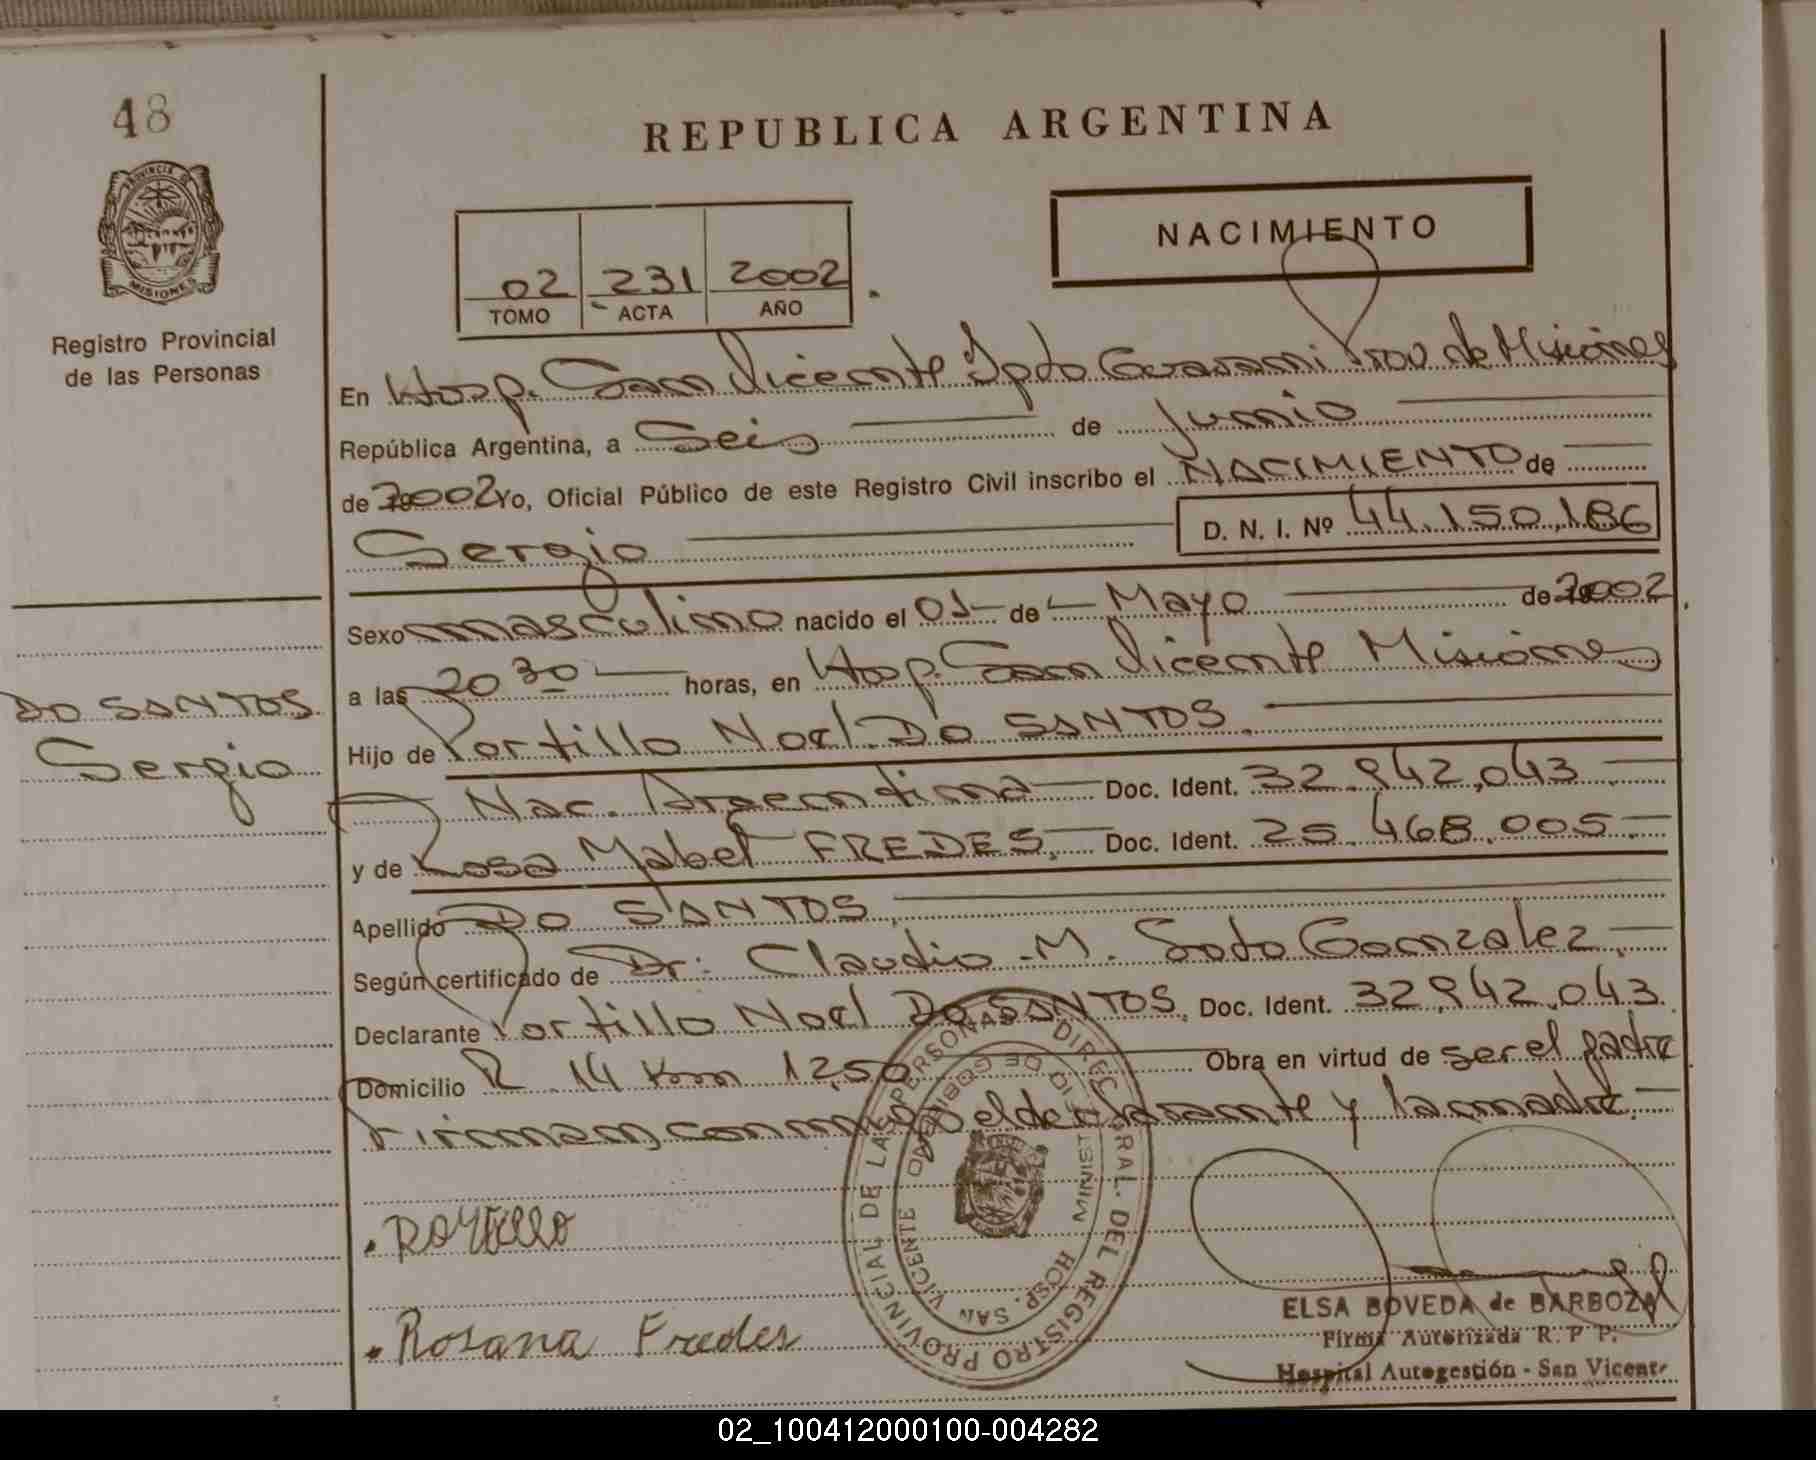 48
PROVINCIA DE
MISIONES
Registro Provincial
de las Personas
DO SANTOS
Sergio
REPUBLICA ARGENTINA
NACIMIENTO
02 231 2002
TOMO ACTA AÑO
En Hosp. San Vicente Dpto Guarani Prov de Misiones
República Argentina, a Seis de Junio
de 2002 Yo, Oficial Público de este Registro Civil inscribo el NACIMIENTO de
Sergio D. N. I. Nº 44.150.186
Sexo masculino nacido el 01 de Mayo de 2002
a las 20 30 horas, en Hosp. San Vicente Misiones
Hijo de Portillo Noel DO SANTOS.
Nac. Argentina Doc. Ident. 32.942.043
y de Rosa Mabel FREDES. Doc. Ident. 25.468.005.
Apellido DO SANTOS.
Según certificado de Dr. Claudio M. Soto Gonzalez.
Declarante Portillo Noel DO SANTOS. Doc. Ident. 32.942.043.
Domicilio R 14 Km 1250 Obra en virtud de ser el padre
Firman conmigo el declarante y la madre.
Rosana Fredes
DIREC. GRAL. DEL REGISTRO PROVINCIAL DE LAS PERSONAS
MINIST DE GOBIERNO
HOSP. SAN VICENTE
ELSA BOVEDA de BARBOZA
Firma Autorizada R. P. P.
Hospital Autogestión - San Vicente
02_100412000100-004282